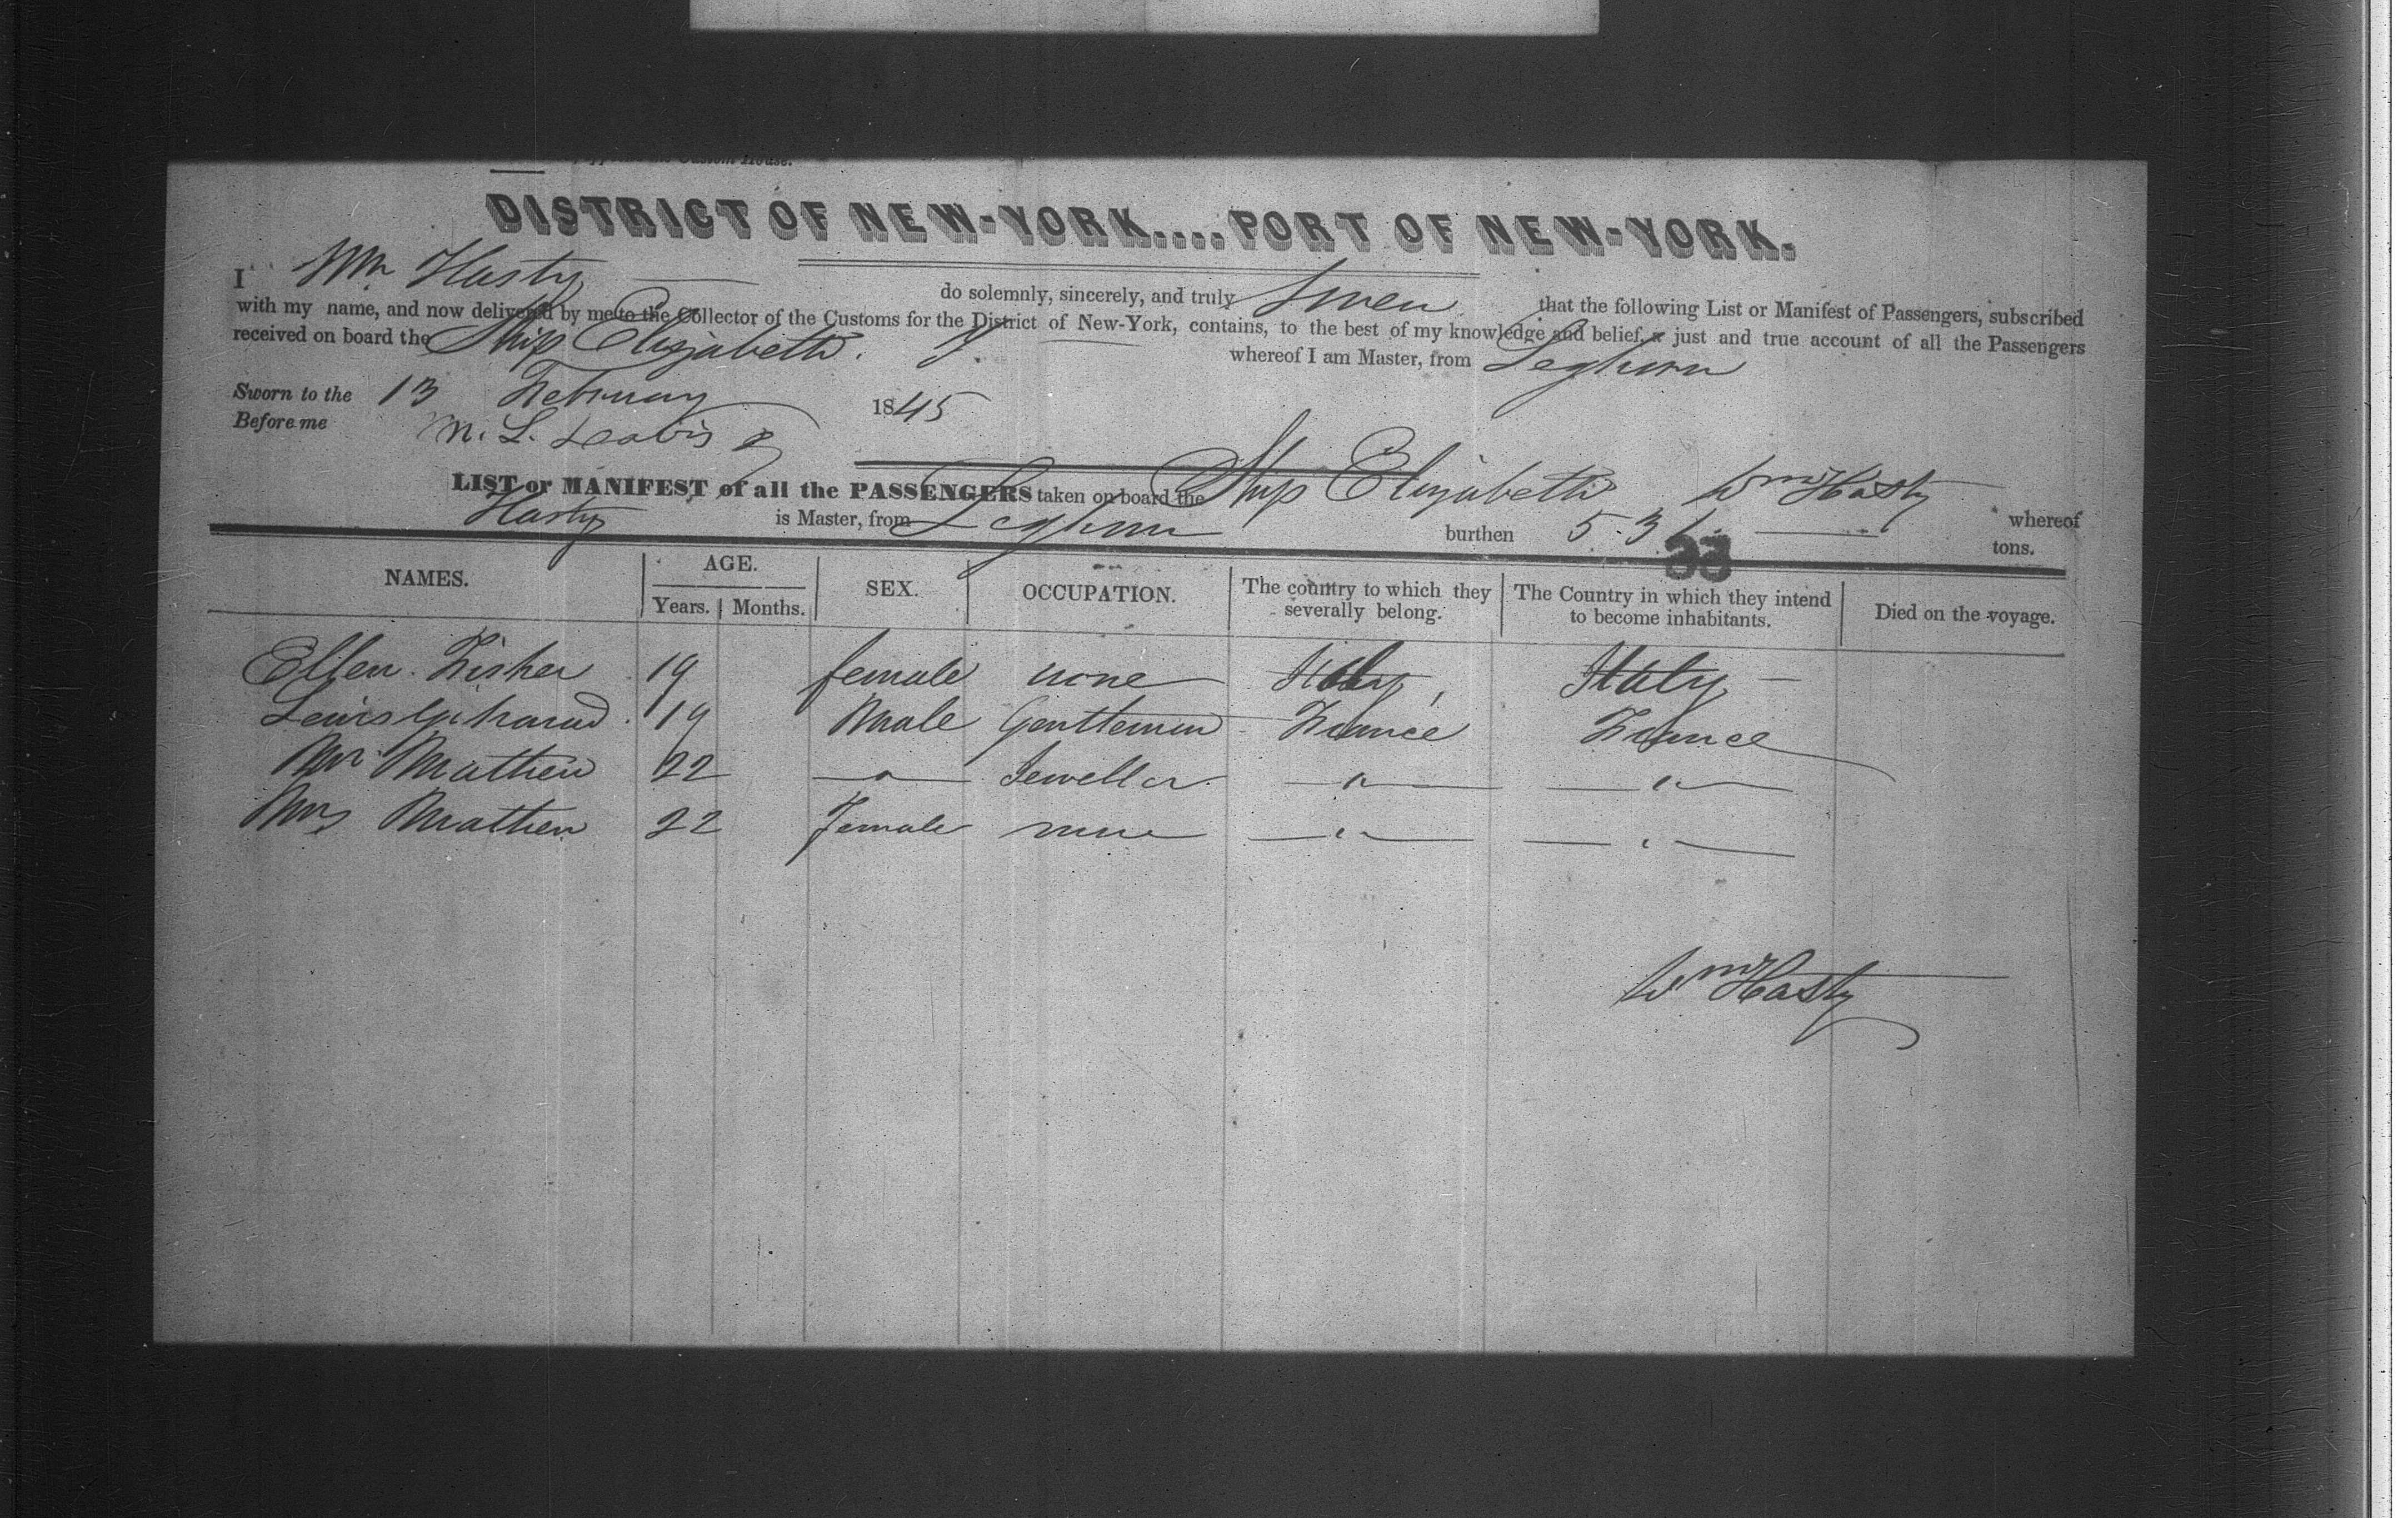 Custom House.
DISTRICT OF NEW-YORK....PORT OF NEW-YORK.
I Wm Hasty do solemnly, sincerely, and truly Swear that the following List or Manifest of Passengers, subscribed
with my name, and now delivered by me to the Collector of the Customs for the District of New-York, contains, to the best of my knowledge and belief, a just and true account of all the Passengers
received on board the Ship Elizabeth. whereof I am Master, from Leghorn
Sworn to the 13 February 1845
Before me
LIST or MANIFEST of all the PASSENGERS taken on board the Ship Elizabeth Wm Hasty whereof
Hasty is Master, from Leghorn burthen tons.
NAMES. AGE. SEX. OCCUPATION. The country to which they severally belong. The Country in which they intend to become inhabitants. Died on the voyage.
Years. Months.
Ellen Fisher 19 female none Italy Italy
Lewis 19 Male Gentleman France France
Mr Mathew 22 " Jeweller " "
Mrs Mathew 22 Female none " "
Wm Hasty